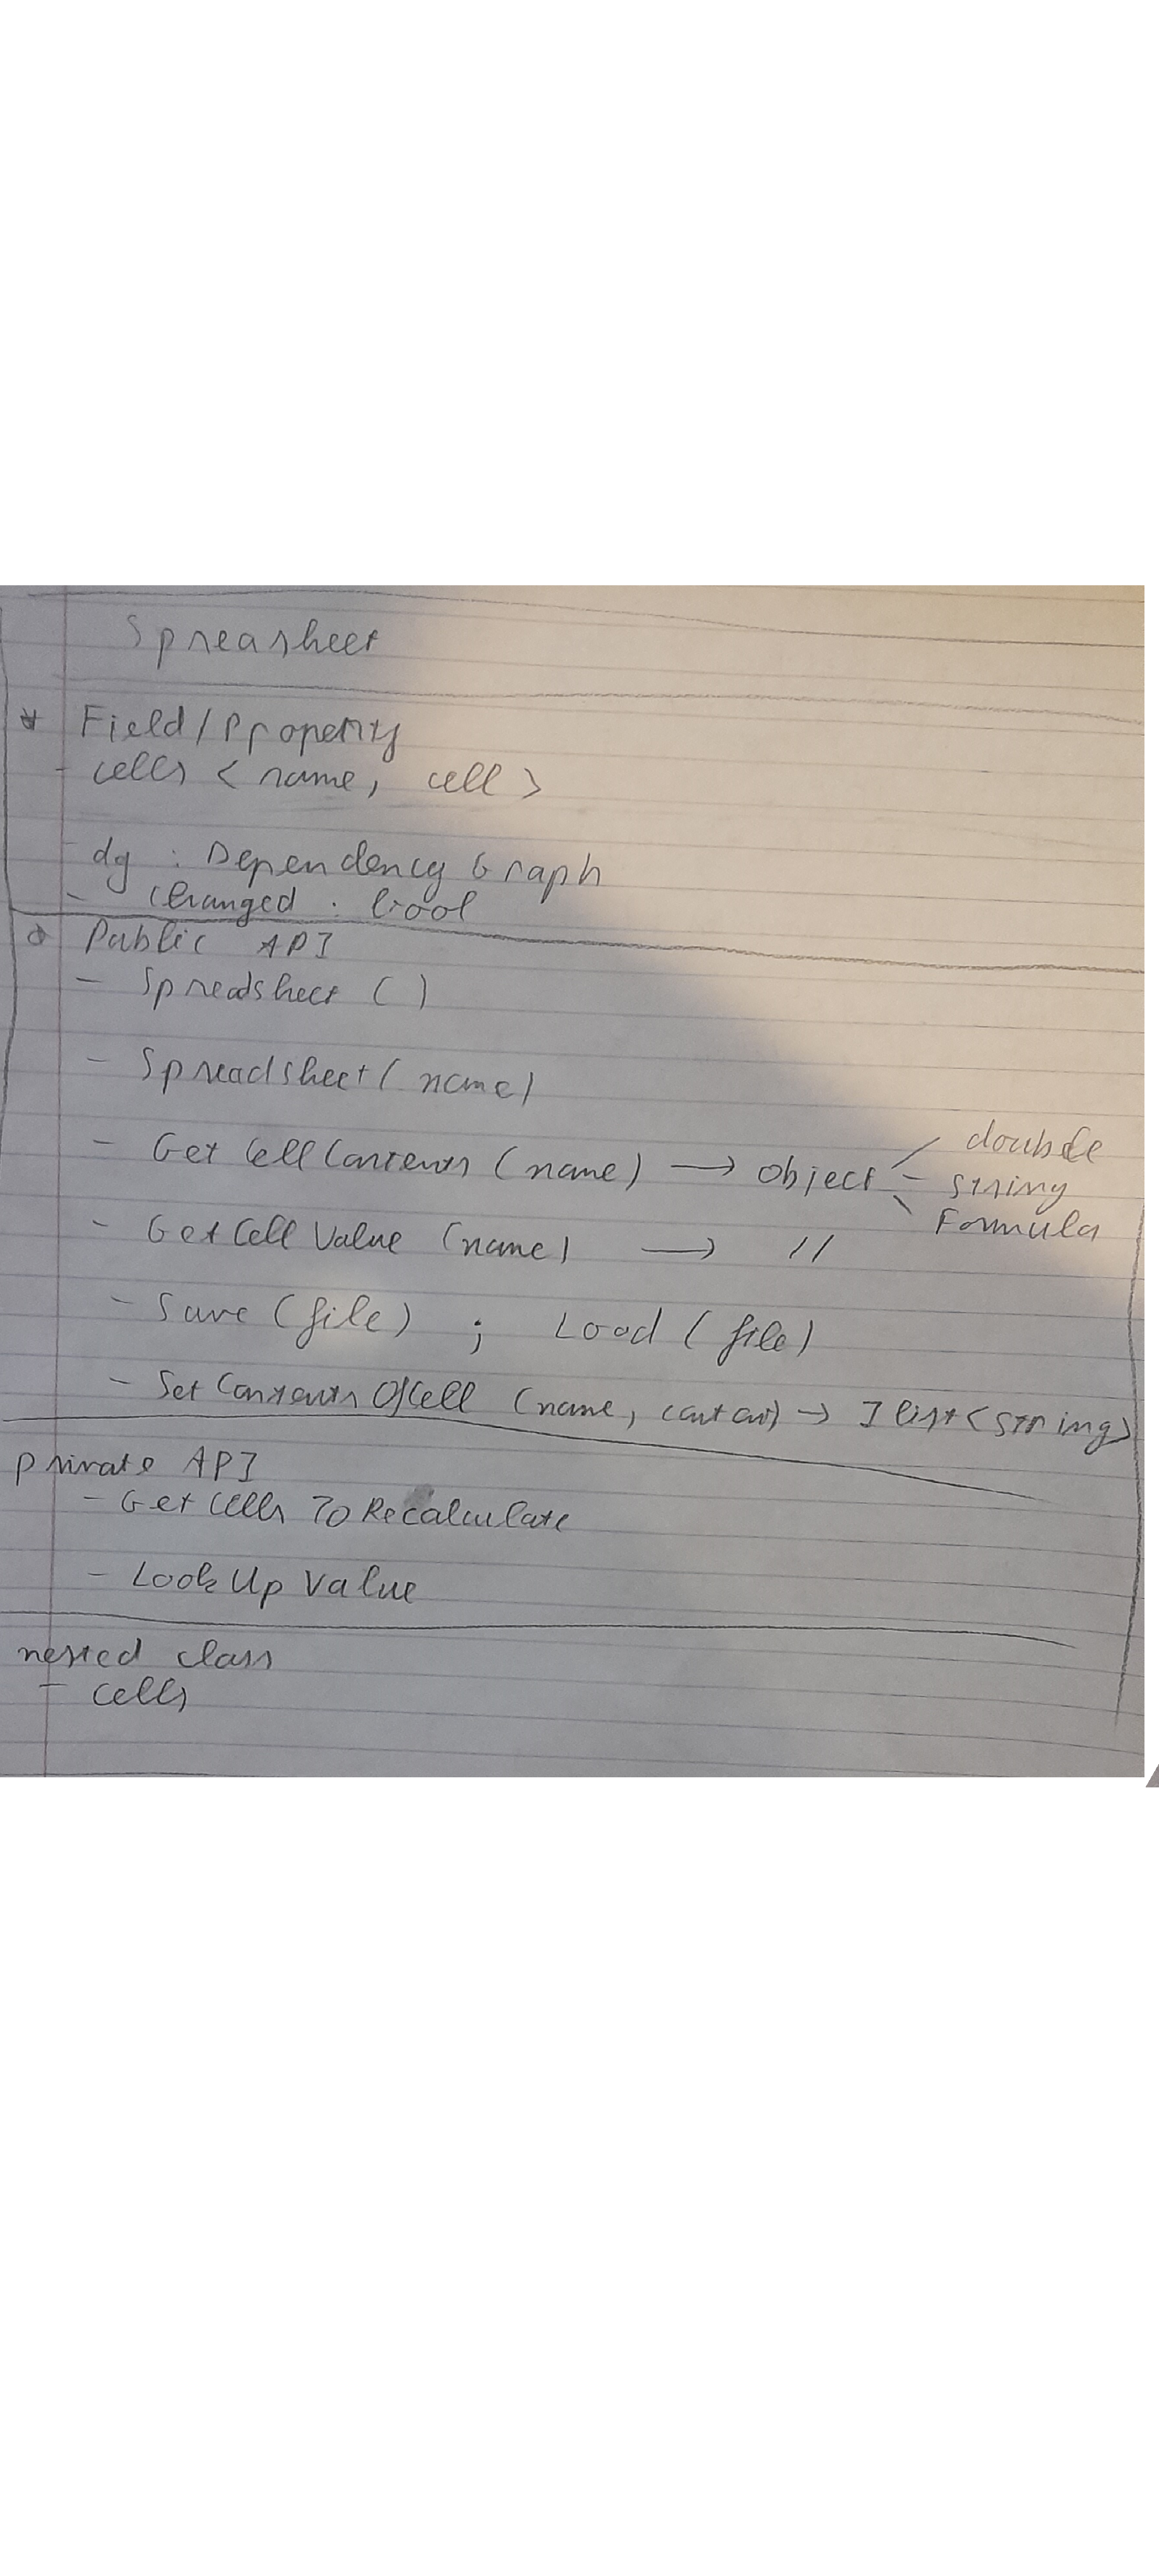 Spreasheet
* Field/Property
- cells < name, cell >
- dg : Dependency Graph
- Changed : bool
Public API
- Spreadsheet ( )
- Spreadsheet ( name )
- Get Cell Contents ( name ) → object - double
- string
- Formula
- Get Cell Value ( name ) → //
- Save ( file ) ; Load ( file )
- Set Contents Of Cell ( name, ) → Ilist < string >
private API
- Get Cells To Recalculate
- Look Up Value
nested class
- cells